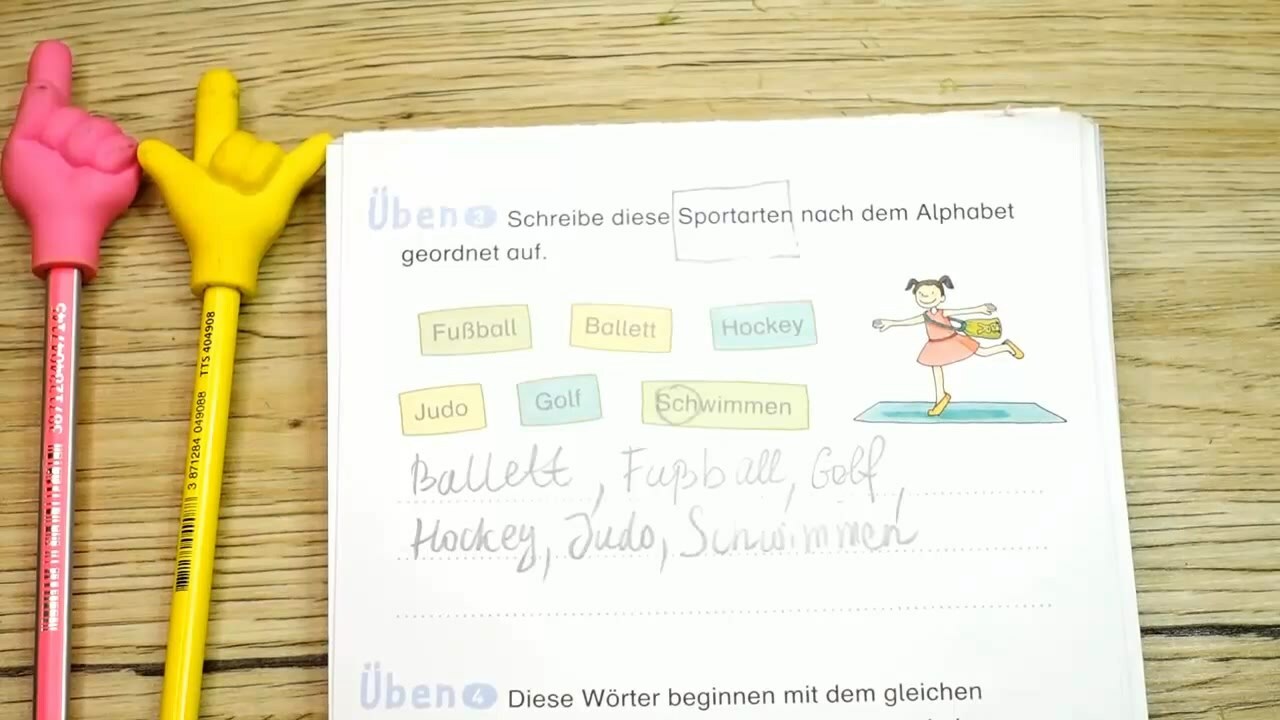 Üben 3 Schreibe diese Sportarten nach dem Alphabet
geordnet auf.
Fußball Ballett Hockey
Judo Golf Schwimmen
Ballett, Fußball, Golf,
Hockey, Judo, Schwimmen
Üben 4 Diese Wörter beginnen mit dem gleichen
3 871284 049088 TTS 404908